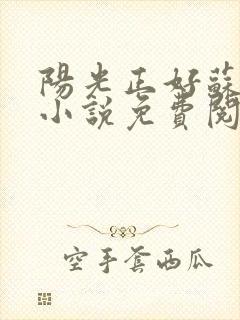 陽光正好蘇
小說免費閱
空手套西瓜